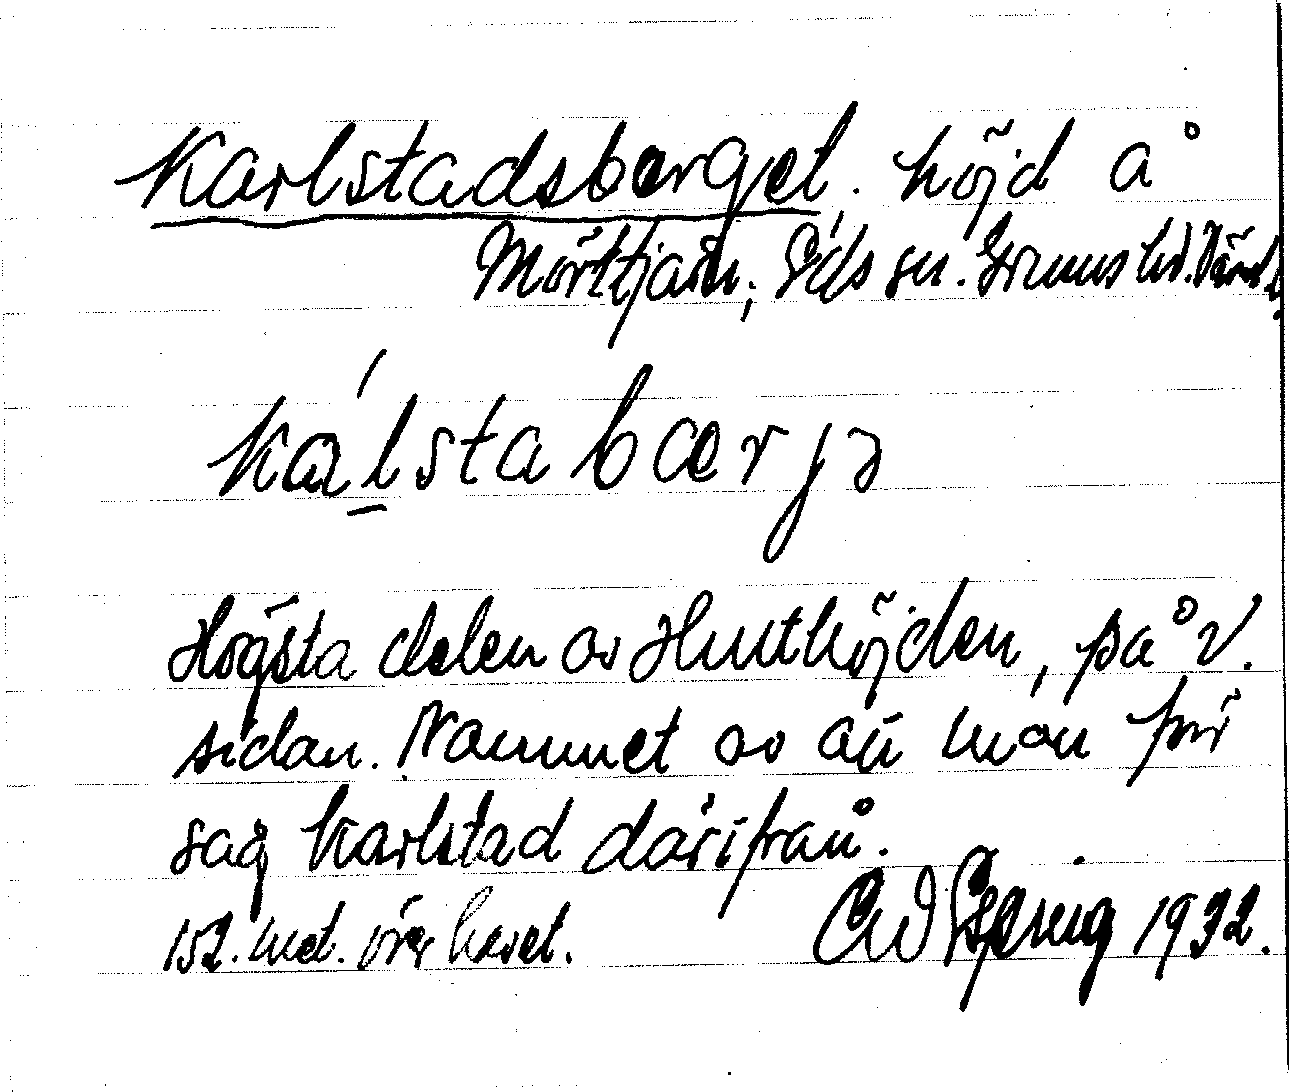 Karlstadsberget. höjd å
Mörttjärn, Eds sn. Grums hd. Värml.
kálstabærjə
Högsta delen av Hulthöjden, på v.
sidan. Namnet av att man för
såg Karlstad därifrån.
152. met. över havet. 1932.